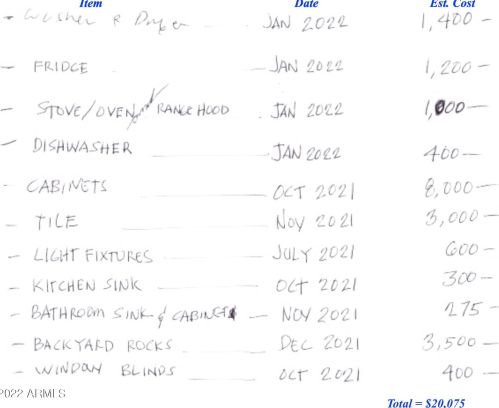 Item Date Est. Cost
- Washer & Dryer JAN 2022 1,400 -
- FRIDGE JAN 2022 1,200 -
- STOVE/OVEN RANGE HOOD JAN 2022 1,000 -
- DISHWASHER JAN 2022 400 -
- CABINETS OCT 2021 8,000 -
- TILE NOV 2021 3,000 -
- LIGHT FIXTURES JULY 2021 600 -
- KITCHEN SINK OCT 2021 300 -
- BATHROOM SINK & CABINET NOV 2021 275 -
- BACKYARD ROCKS DEC 2021 3,500 -
- WINDOW BLINDS OCT 2021 400 -
2022 ARMLS
Total = $20,075